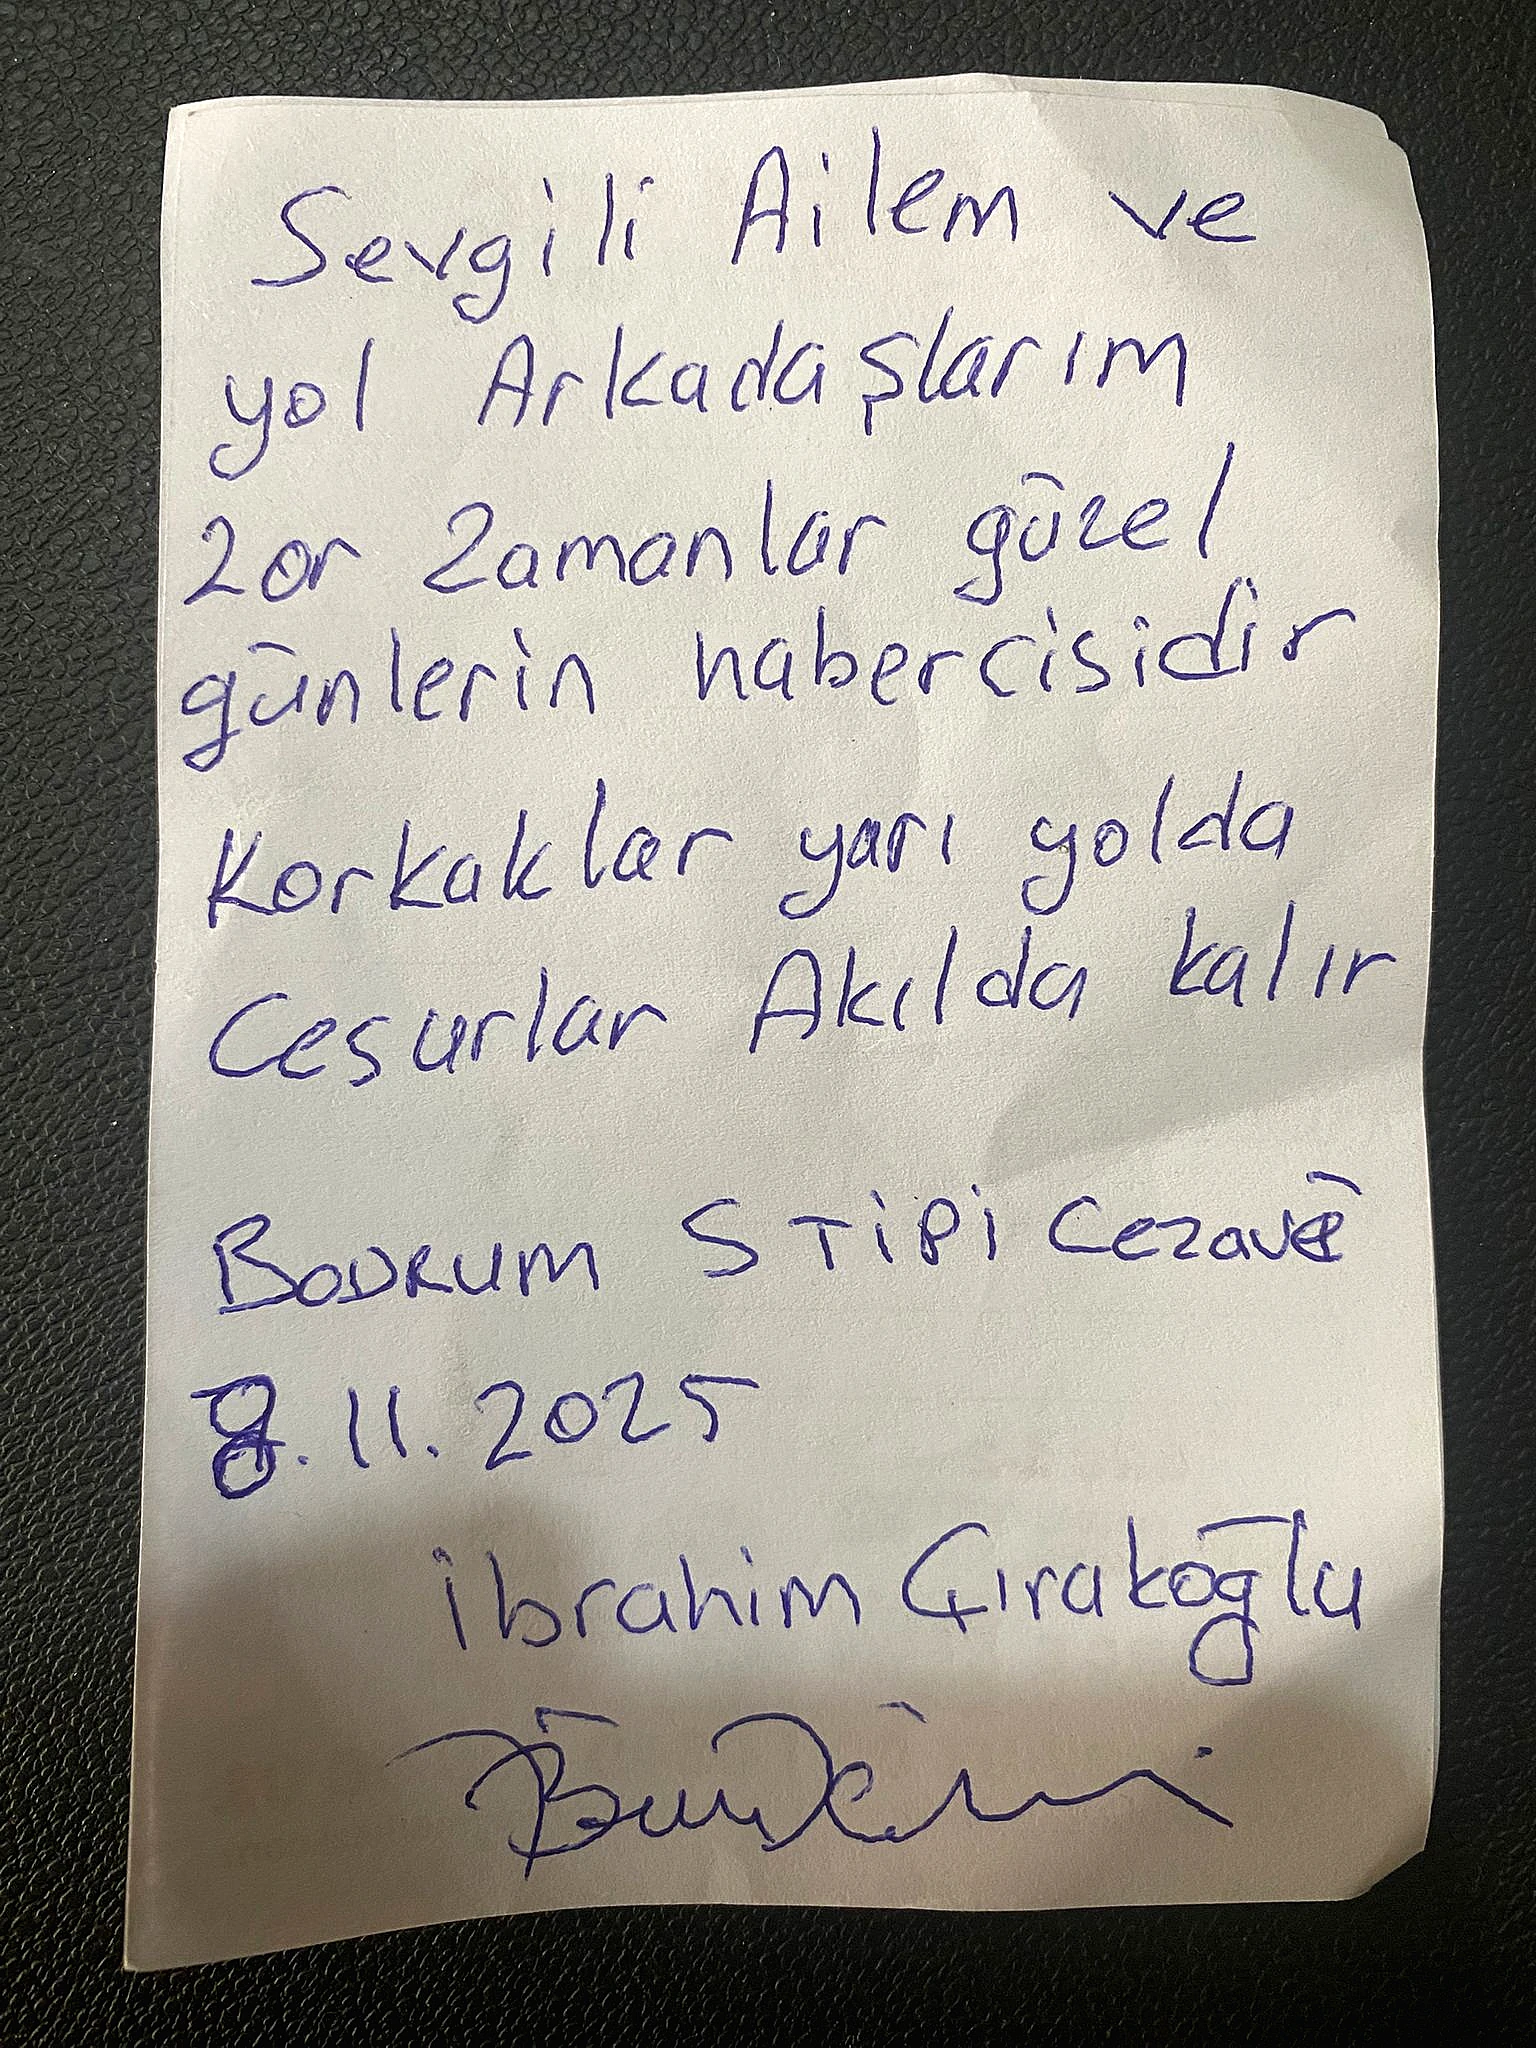 Sevgili Ailem ve
yol Arkadaşlarım
zor zamanlar güzel
günlerin habercisidir
Korkaklar yarı yolda
Cesurlar Akılda kalır
BODRUM S TİPİ Cezave
8.11.2025
İbrahim Çırakoğlu